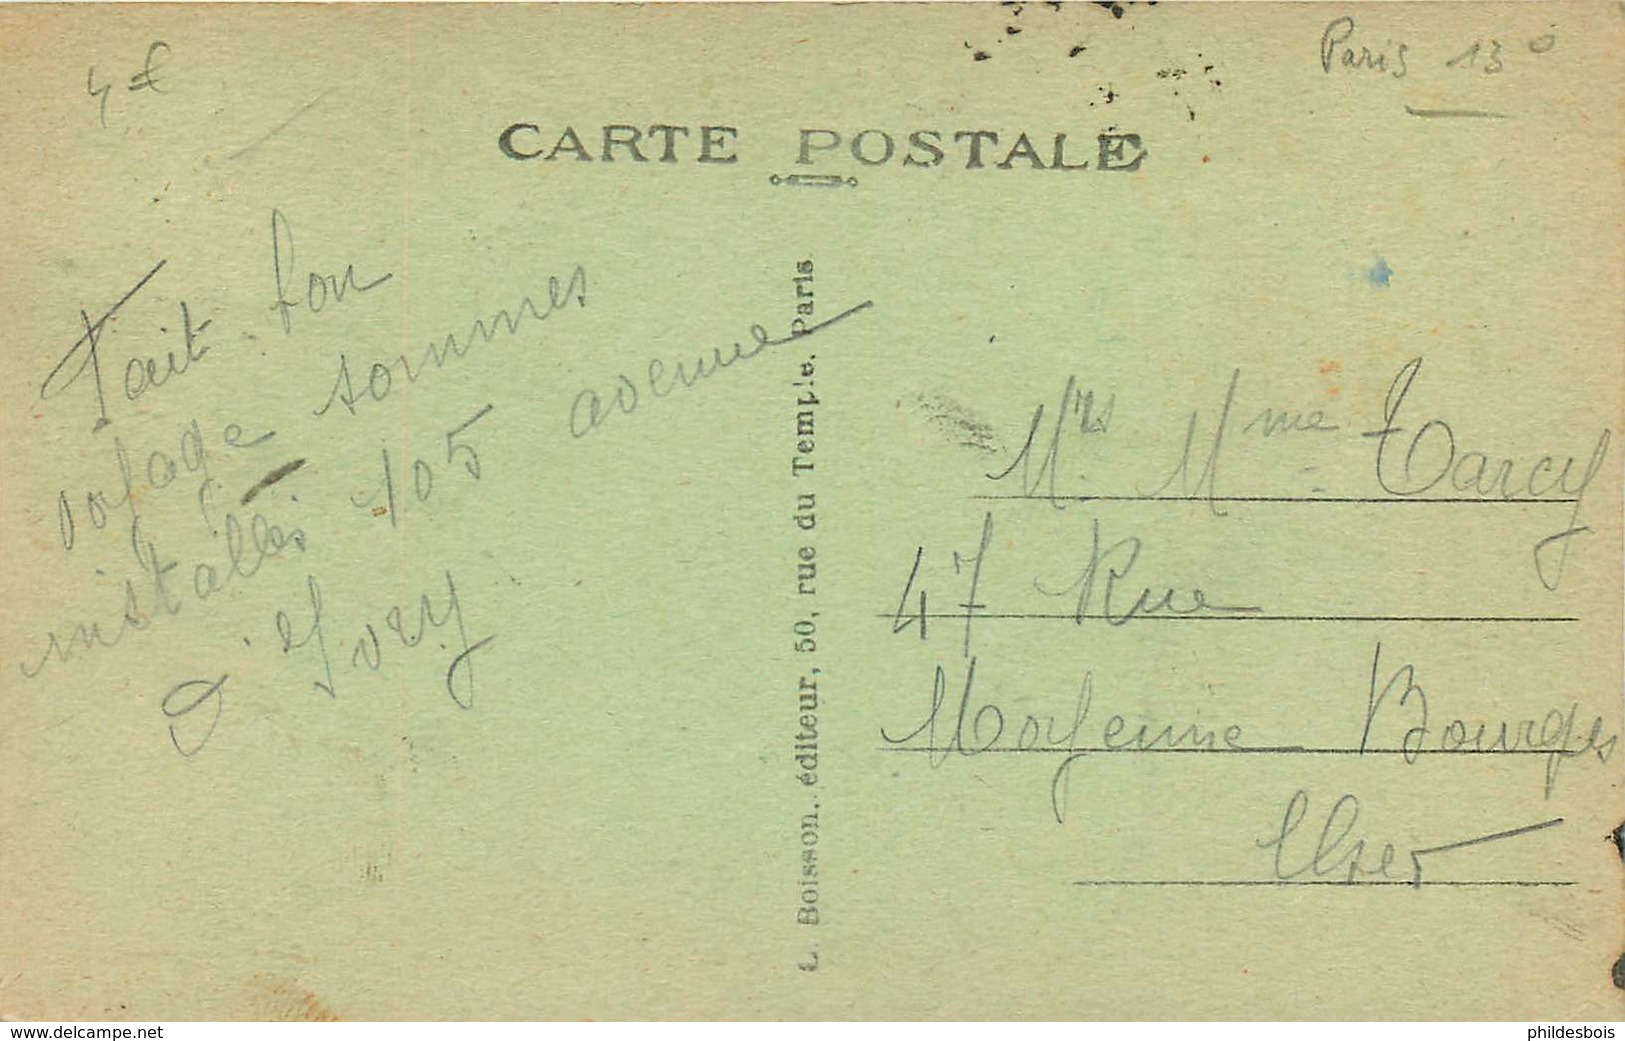 4€
Paris 13°
CARTE POSTALE
Fait bon
voyage sommes
installés 105 avenue
d'Ivry
L. Boisson, éditeur, 50, rue du Temple, Paris
Mme Tarcy
47 Rue
Moyenne Bourges
Cher
www.delcampe.net
phildesbois